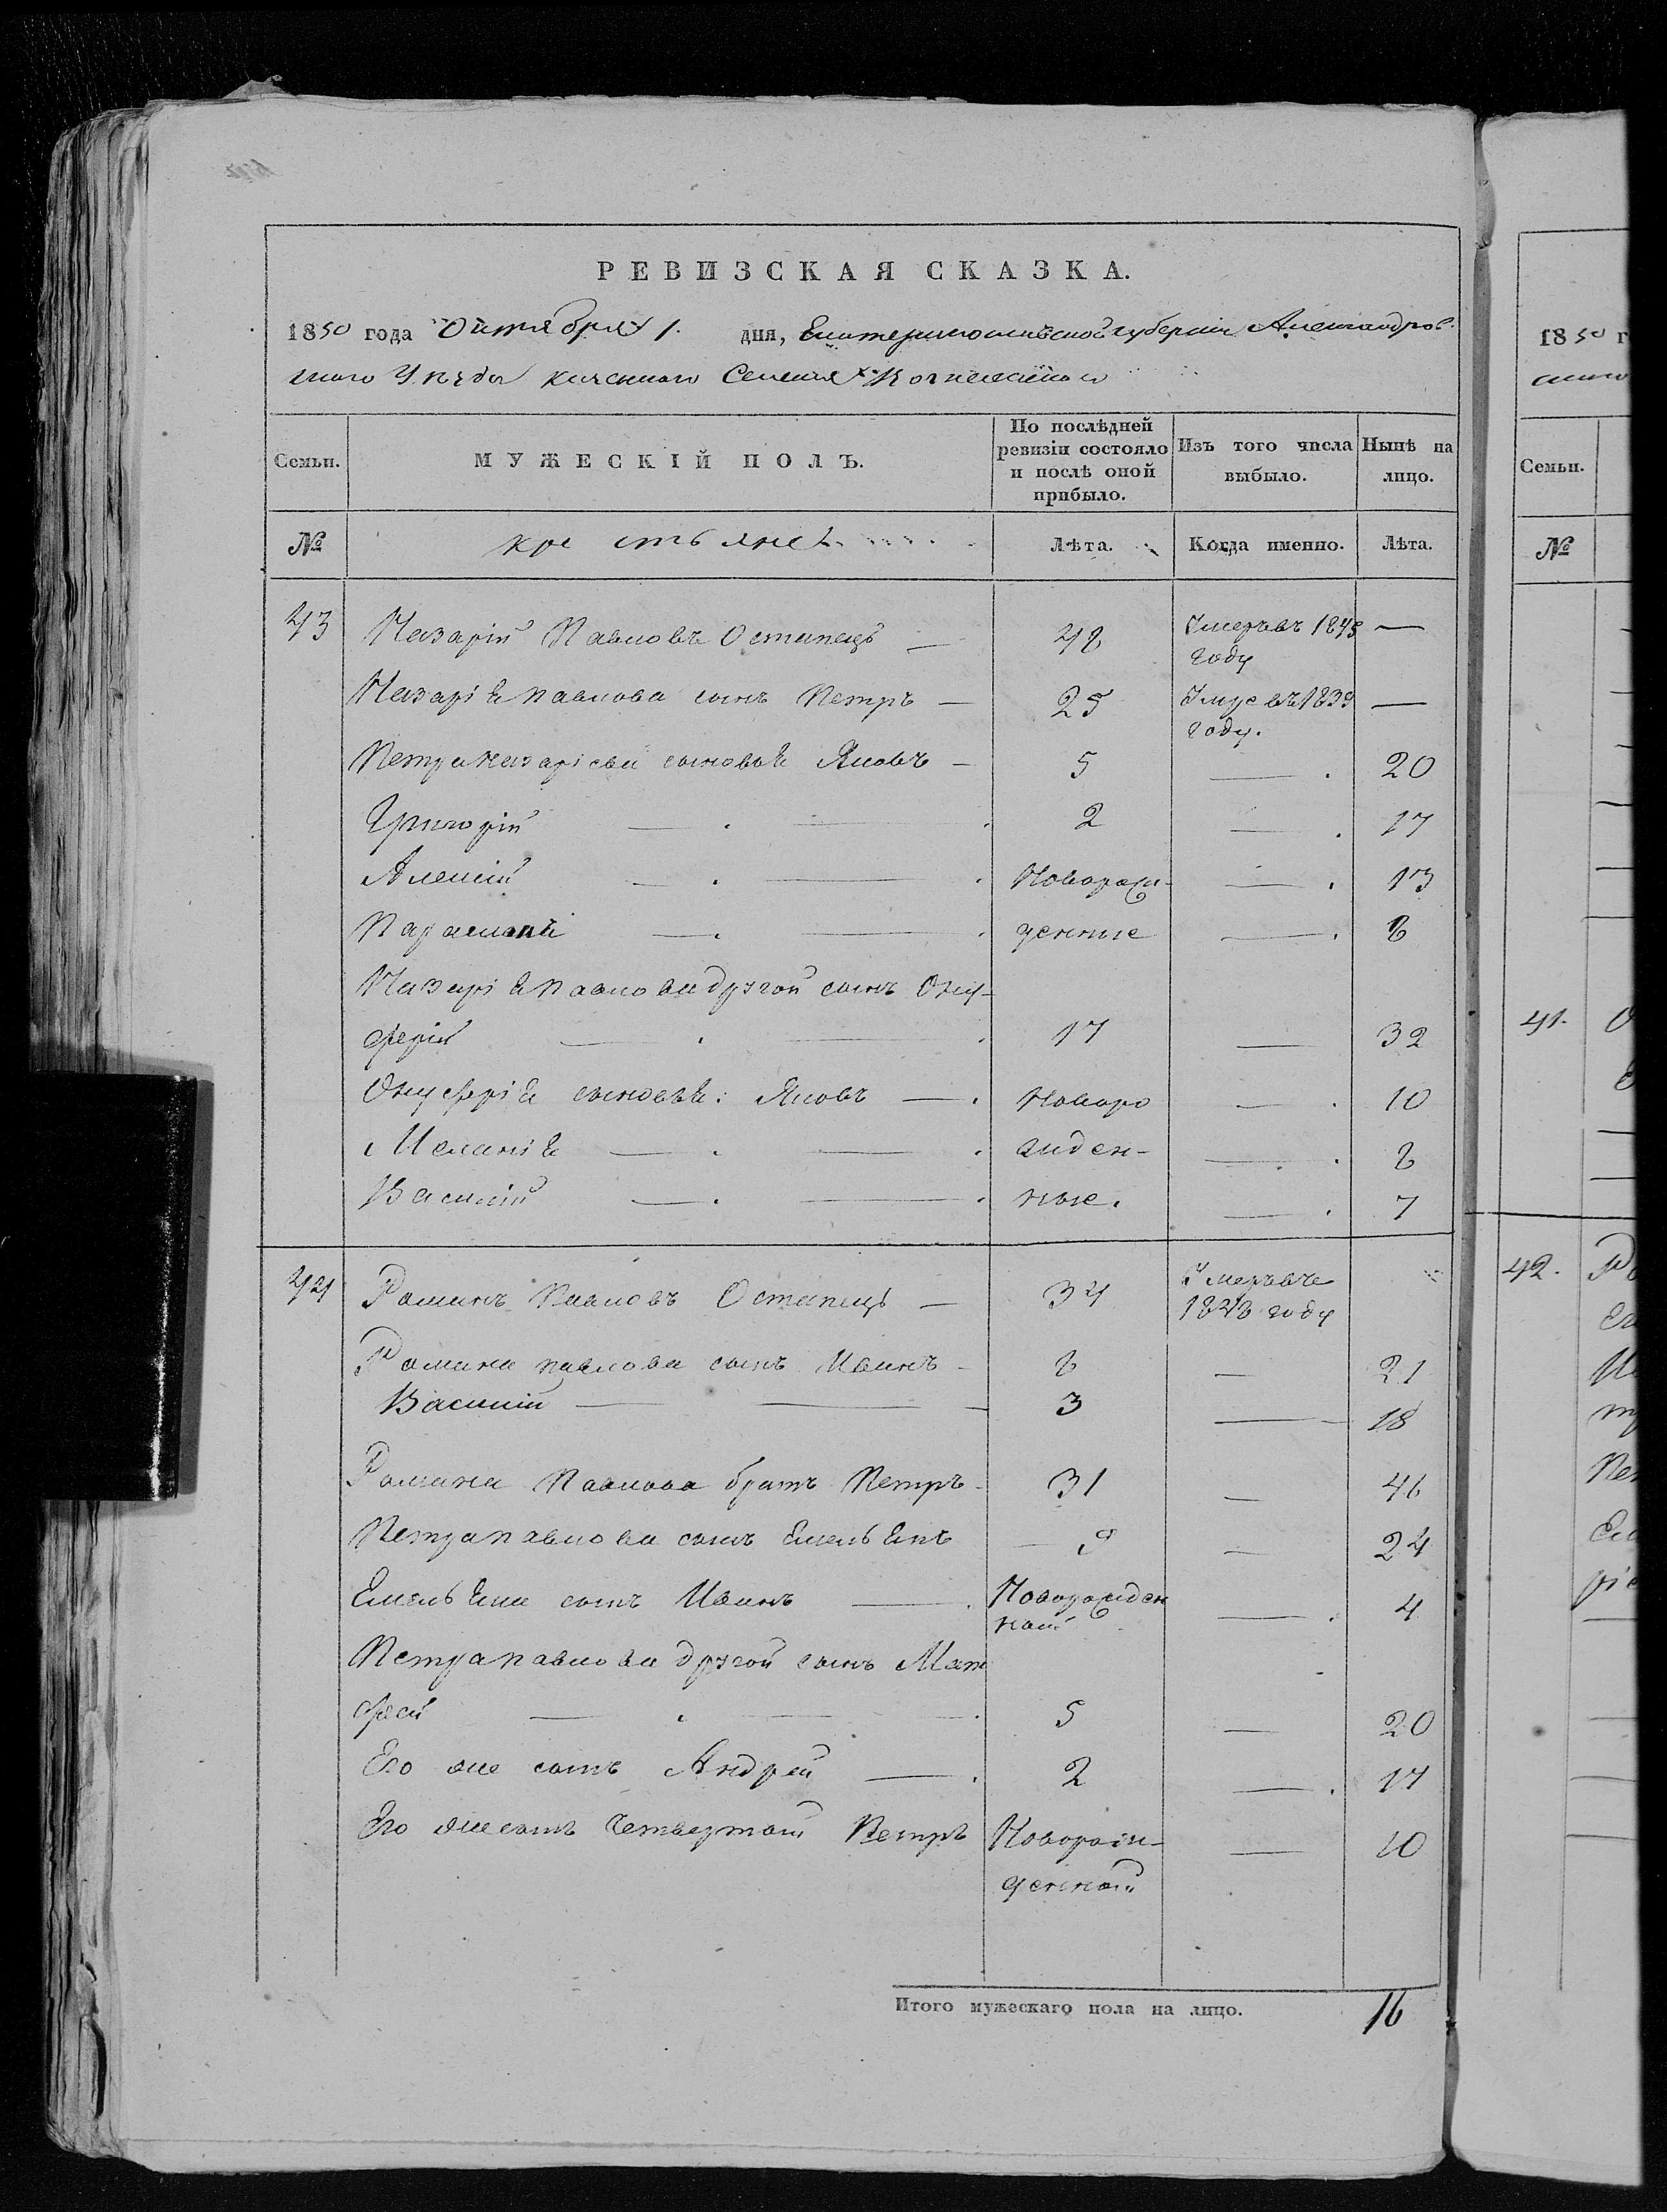 РЕВИЗСКАЯ СКАЗКА.
1850 года Октября 1. дня, Екатеринославской губерніи Александров-
скаго Уѣзда казеннаго Селенія
Семьи. МУЖЕСКІЙ ПОЛЪ. По послѣдней ревизіи состояло и послѣ оной прибыло. Изъ того числа выбыло. Нынѣ на лицо.
№ крестьяне Лѣта. Когда именно. Лѣта.
43 Назарій Павловъ Остапецъ — 48 Умеръ въ 1845 году —
Назарія павлова сынъ Петръ — 25 Умре въ 1839 году. —
Петра назаріева сыновья Яковъ — 5 — 20
Григорій — 2 — 17
Алексій — Поворож- — 13
Парамонъ — денные — 8
Назарія павлова другой сынъ Ону-
ферій — 17 — 32
Онуфрія сыновья: Яковъ — Новоро — 10
Меланія — жден- — 8
Василій — ные. — 7
44 Романъ Павловъ Остапецъ — 34 Умеръ въ 1848 году
Романа павлова сынъ Иванъ — 6 — 21
Василій — 3 — 18
Романа Павлова братъ Петръ — 31 — 46
Петра павлова сынъ Емельянъ — 9 — 24
Емельяна сынъ Иванъ — Новорожден ной — 4
Петра павлова другой сынъ Мат
фей — 5 — 20
Его же сынъ Андрей — 2 — 17
Его же сынъ четвертой Петръ Новорож- — 10
денной
Итого мужескаго пола на лицо. 16
1850 г
Семьи.
№
41.
42.